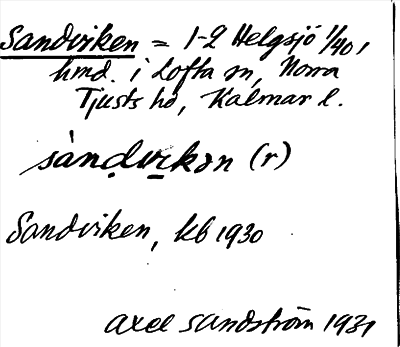 Sandviken = 1-2 Helgsjö 1/40,
hmd. i Lofta sn, Norra
Tjusts hd, Kalmar l.
sànḍvi̱kən (r)
Sandviken, kb 1930
Axel Sandström 1931